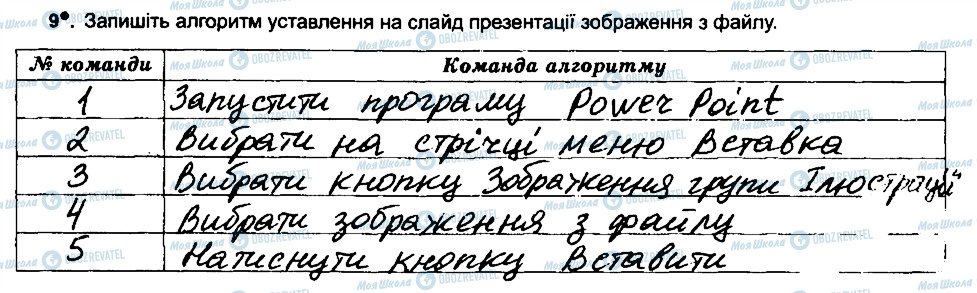 9•. Запишіть алгоритм уставлення на слайд презентації зображення з файлу.
№ команди Команда алгоритму
1 Запустити програму Power Point
2 Вибрати на стрічці меню Вставка
3 Вибрати кнопку Зображення групи Ілюстрації
4 Вибрати зображення з файлу
5 Натиснути кнопку Вставити